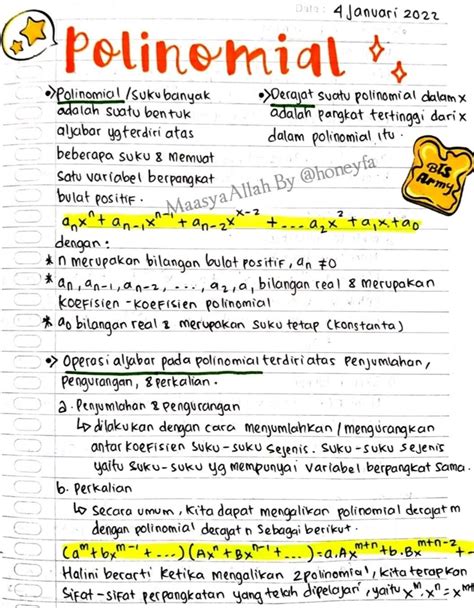 Date: 4 Januari 2022
Polinomial
•> Polinomial / Suku banyak
adalah suatu bentuk
aljabar yg terdiri atas
beberapa suku & Memuat
satu variabel berpangkat
bulat positif.
•> Derajat suatu polinomial dalam x
adalah pangkat tertinggi dari x
dalam polinomial itu.
BTS
Army
MaasyaAllah By @honeyfa
aₙxⁿ + aₙ₋₁xⁿ⁻¹ + aₙ₋₂xˣ⁻² + .... a₂x² + a₁x + a₀
dengan :
* n merupakan bilangan bulat positif, aₙ ≠ 0
* aₙ, aₙ₋₁, aₙ₋₂, ..., a₂, a, bilangan real & merupakan
koefisien - koefisien polinomial
* a₀ bilangan real & merupakan suku tetap (konstanta)
•> Operasi aljabar pada polinomial terdiri atas penjumlahan,
pengurangan, & perkalian.
a. Penjumlahan & pengurangan
↳ dilakukan dengan cara menjumlahkan / mengurangkan
antar koefisien suku-suku sejenis. Suku-suku sejenis
yaitu suku-suku yg mempunyai variabel berpangkat sama.
b. Perkalian
↳ Secara umum, kita dapat mengalikan polinomial derajat m
dengan polinomial derajat n sebagai berikut.
(aᵐ + bxᵐ⁻¹ + ...) (Axⁿ + Bxⁿ⁻¹ + ...) = a.Axᵐ⁺ⁿ + b.Bxᵐ⁺ⁿ⁻² + -
Hal ini berarti ketika mengalikan 2 polinomial, kita terapkan
sifat-sifat perpangkatan yang telah dipelajari, yaitu xᵐ. xⁿ = xᵐ⁺